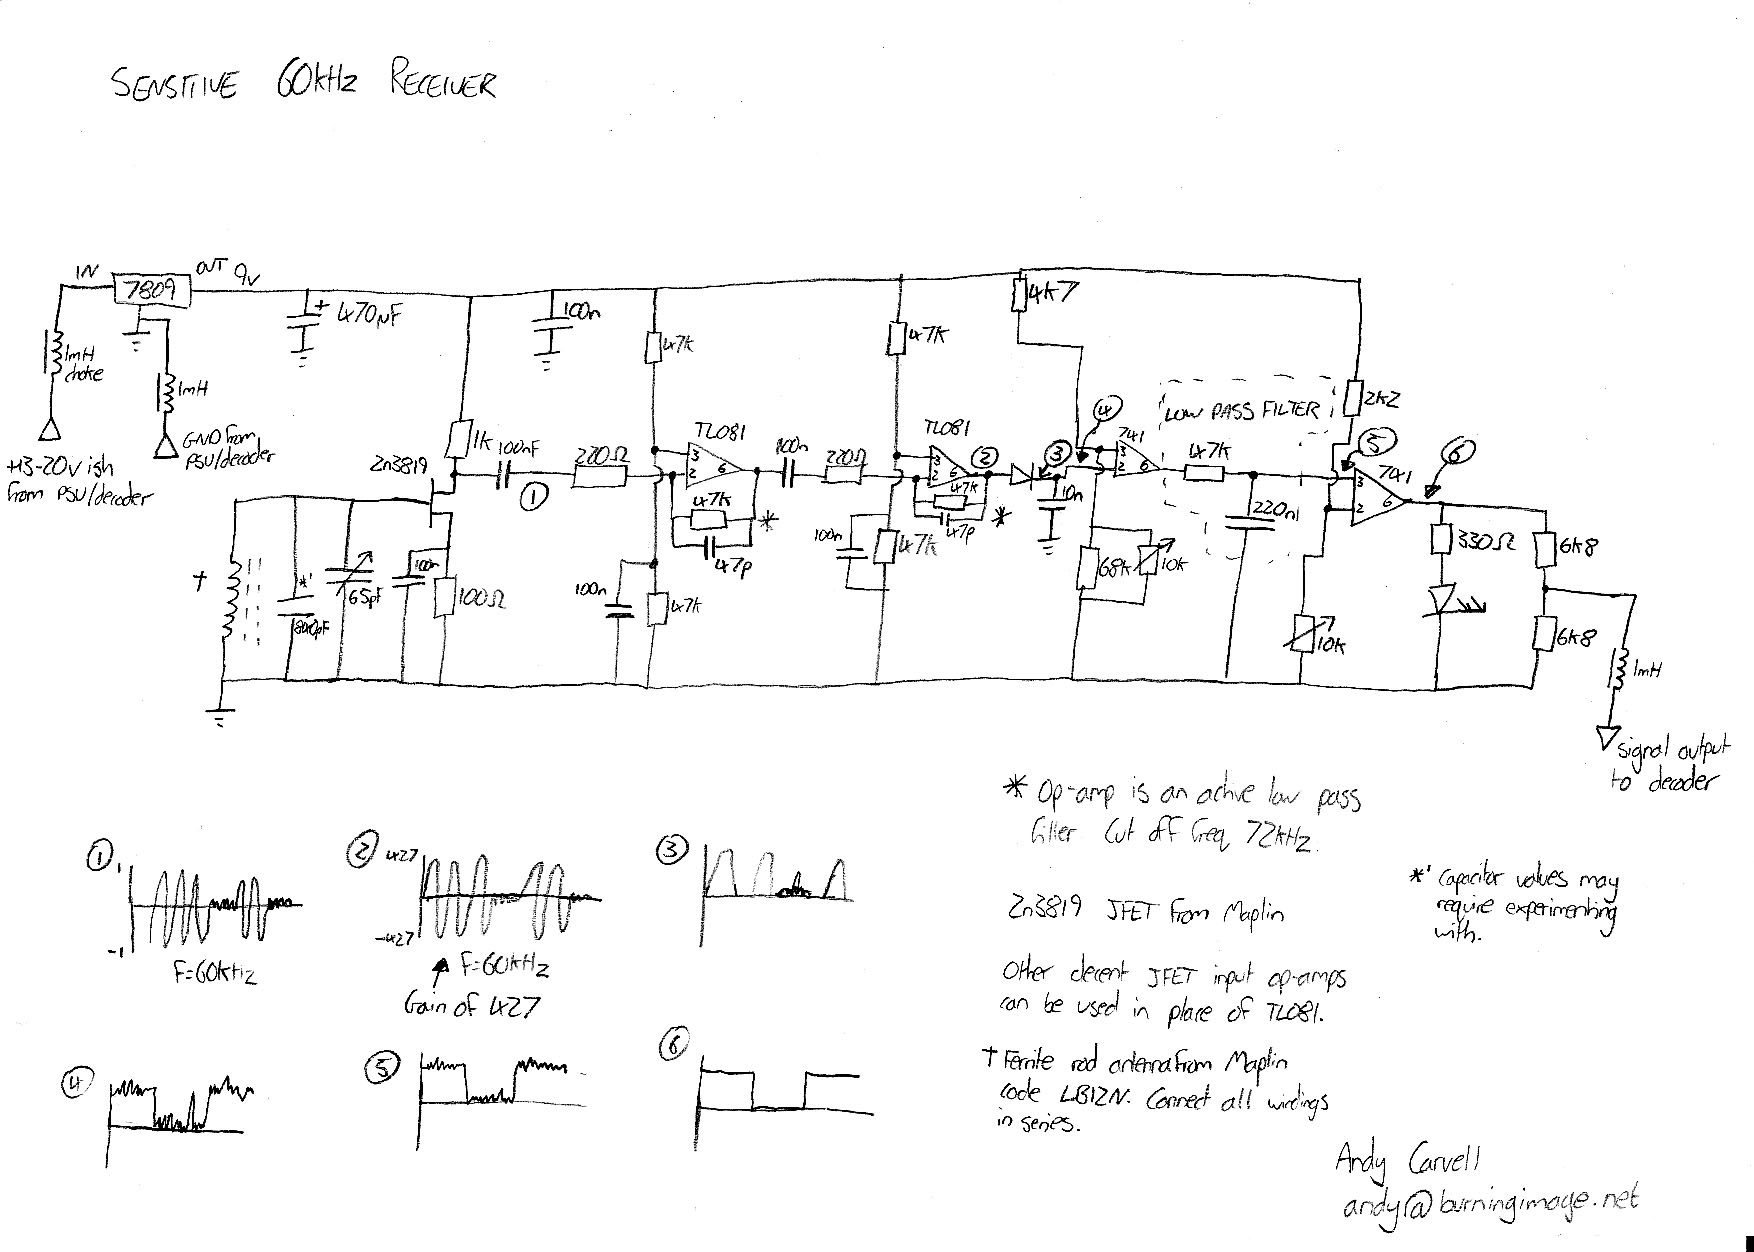 SENSITIVE 60kHz RECEIVER
IN
7809
OUT 9v
1mH
choke
1mH
+13-20v ish
from PSU/decoder
GND from
PSU/decoder
+ 470µF
100n
1K
100nF
2n3819
1
220Ω
47k
TL081
3
2
6
47k
*
47p
100n
47k
100n
220Ω
47k
TL081
3
2
6
47k
47p
*
100n
47k
2
3
10n
4K7
4
741
3
2
6
68k
10k
LOW PASS FILTER
47k
220n
2k2
5
741
3
2
6
10k
6
330Ω
6k8
6k8
1mH
signal output
to decoder
†
*'
65pF
100n
100Ω
1
1
-1
F=60kHz
2
427
-427
F=60kHz
Gain of 427
3
4
5
6
* Op-amp is an active low pass
filter cut off freq 72kHz.
2n3819 JFET from Maplin
Other decent JFET input op-amps
can be used in place of TL081.
† Ferrite rod antenna from Maplin
code LB12N. Connect all windings
in series.
*' Capacitor values may
require experimenting
with.
Andy Carvell
andy@burningimage.net